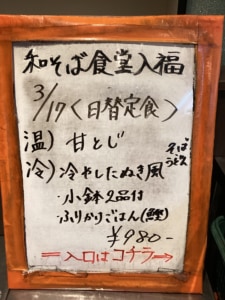 和そば食堂入福
3/17〈日替定食〉
温）甘とじ
冷）冷やしたぬき風
そば
うどん
小鉢2品付
ふりかけごはん(鰹)
¥980-
入口はコチラ→